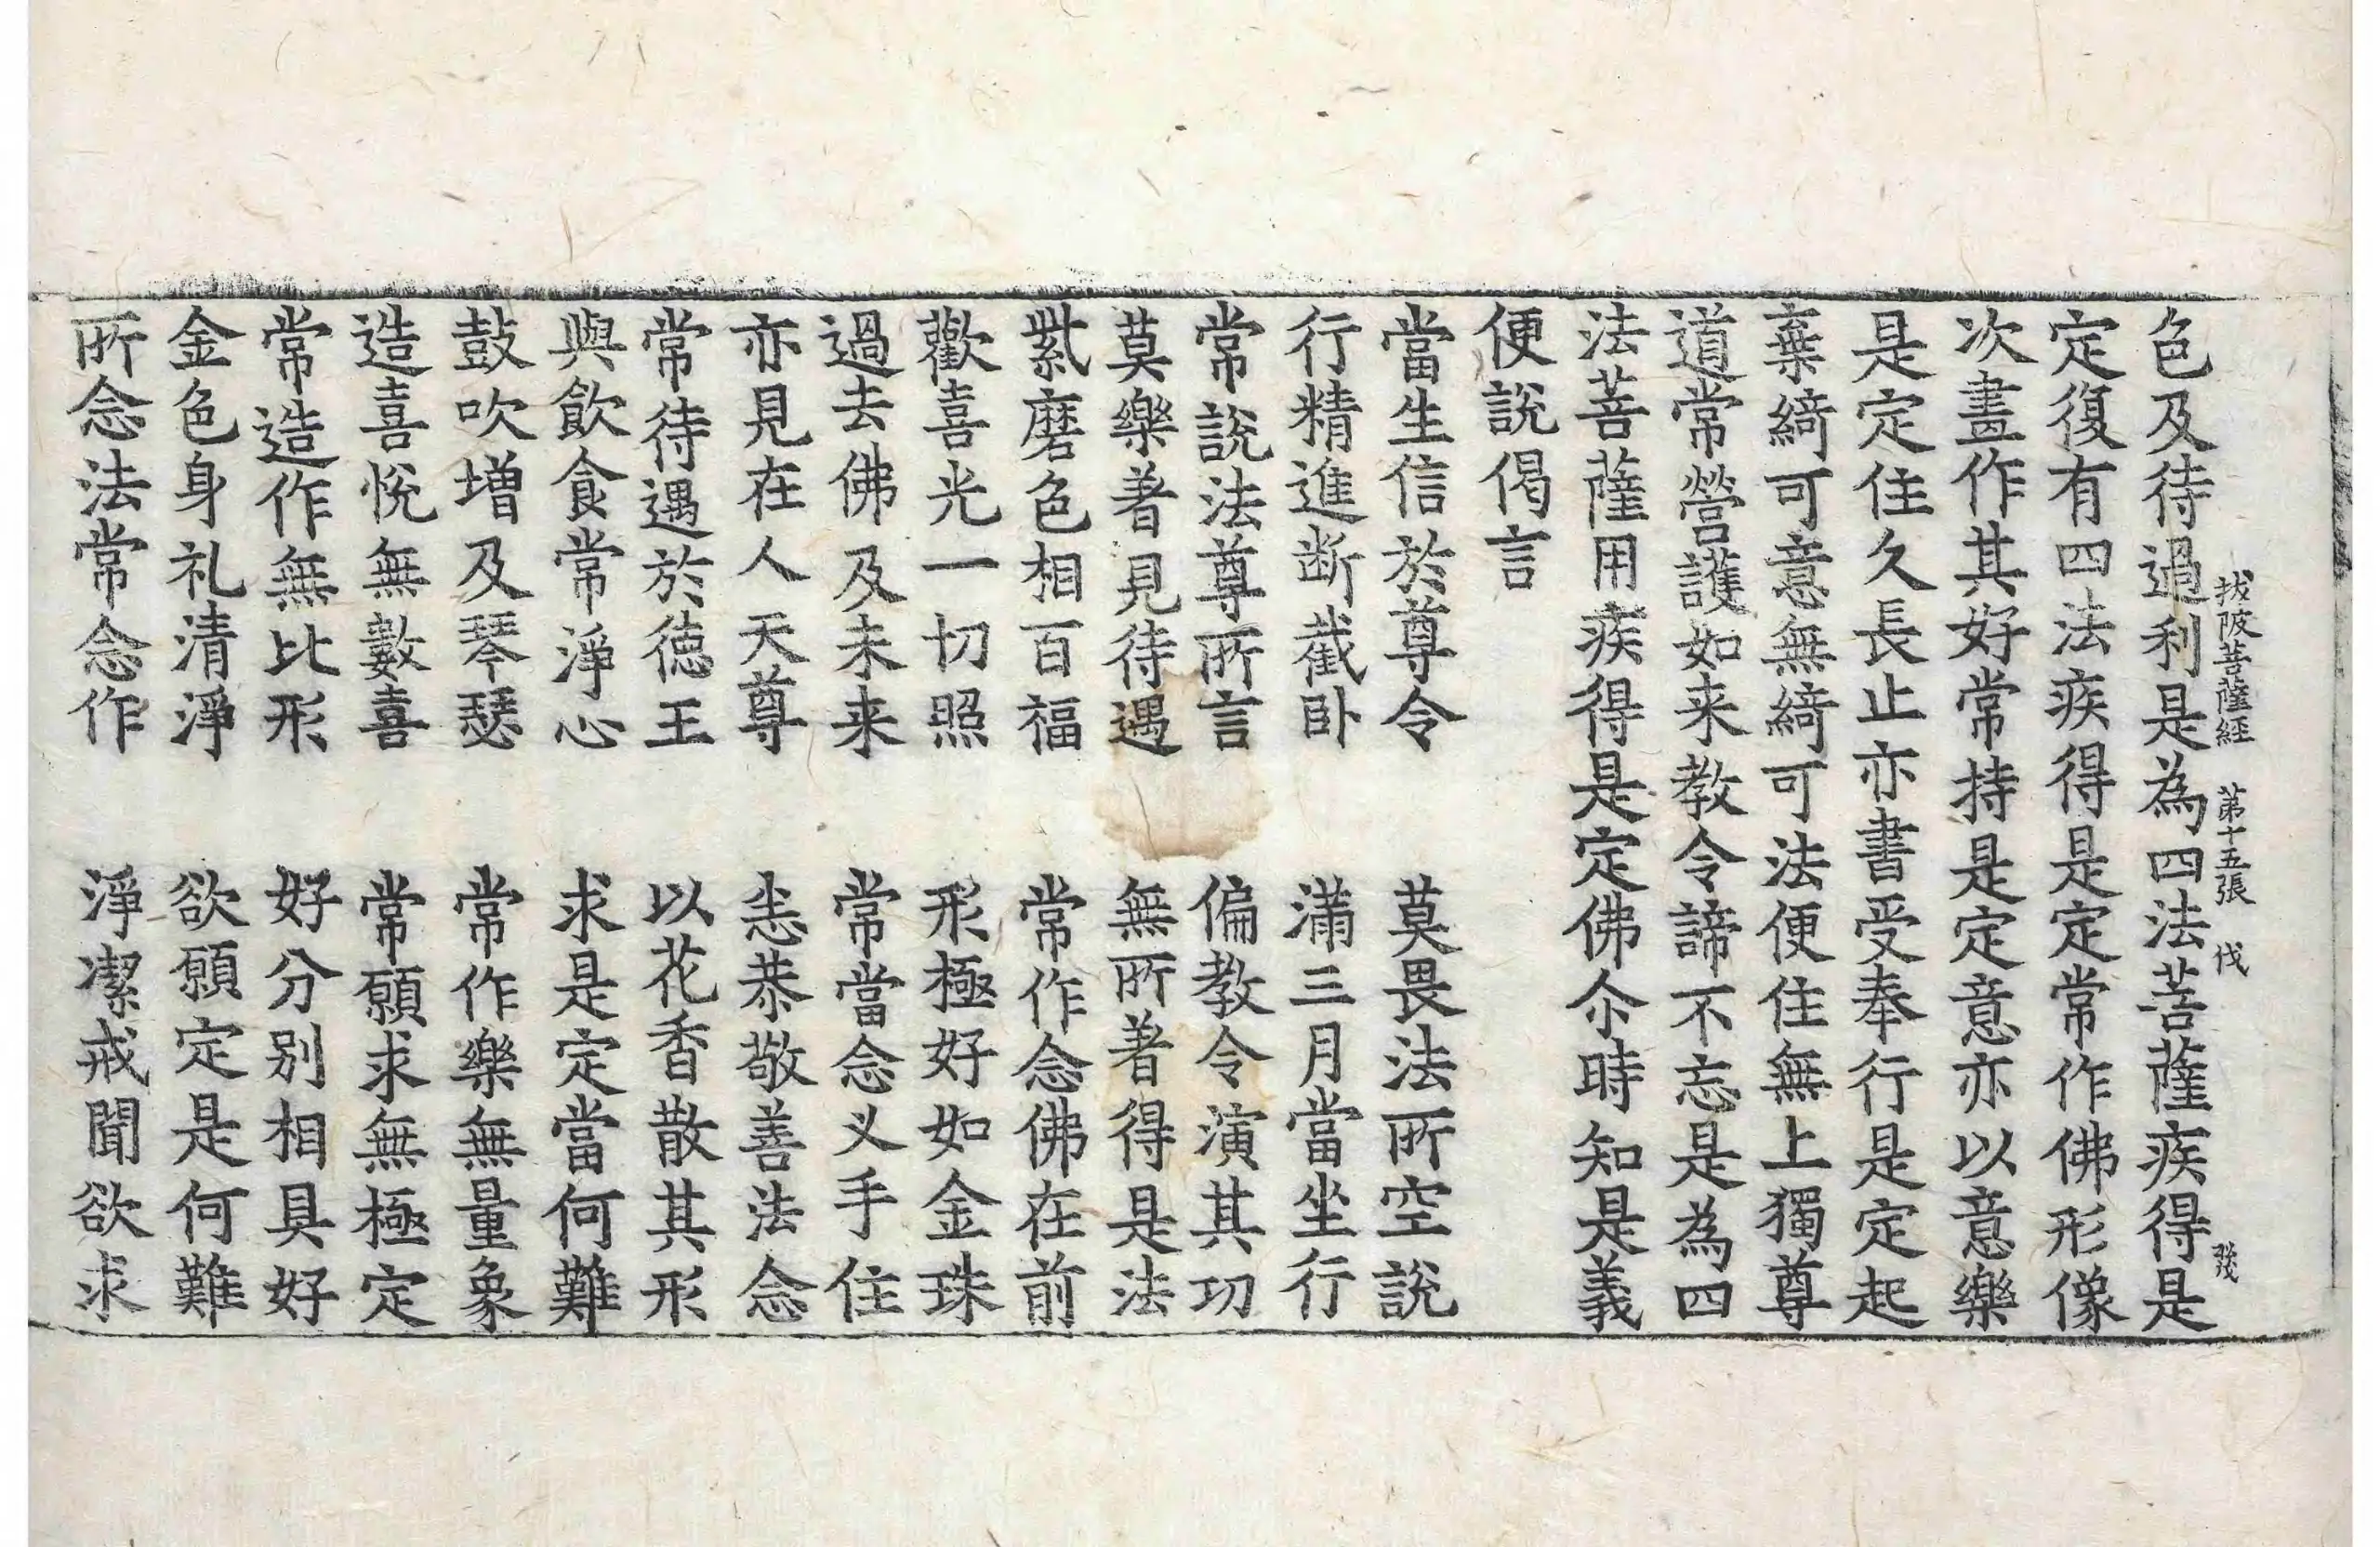 拔陂菩薩經 第十五張 伐
色及待遇利是為四法菩薩疾得是
定復有四法疾得是定常作佛形像
次畫作其好常持是定意亦以意樂
是定住久長止亦書受奉行是定起
棄綺可意無綺可法便住無上獨尊
道常營護如来教令諦不忘是為四
法菩薩用疾得是定佛尒時知是義
便說偈言
當生信於尊令 莫畏法所空說
行精進断截卧 滿三月當坐行
常說法尊所言 偏教令演其功
莫樂著見待遇 無所著得是法
紫磨色相百福 常作念佛在前
歡喜光一切照 形極好如金珠
過去佛及未来 常當念义手住
亦見在人天尊 恙恭敬善法念
常待遇於徳王 以花香散其形
與飲食常淨心 求是定當何難
鼓吹增及琴瑟 常作樂無量象
造喜悅無數喜 常願求無極定
常造作無比形 好分別相具好
金色身礼清淨 欲願定是何難
所念法常念作 淨潔戒聞欲求